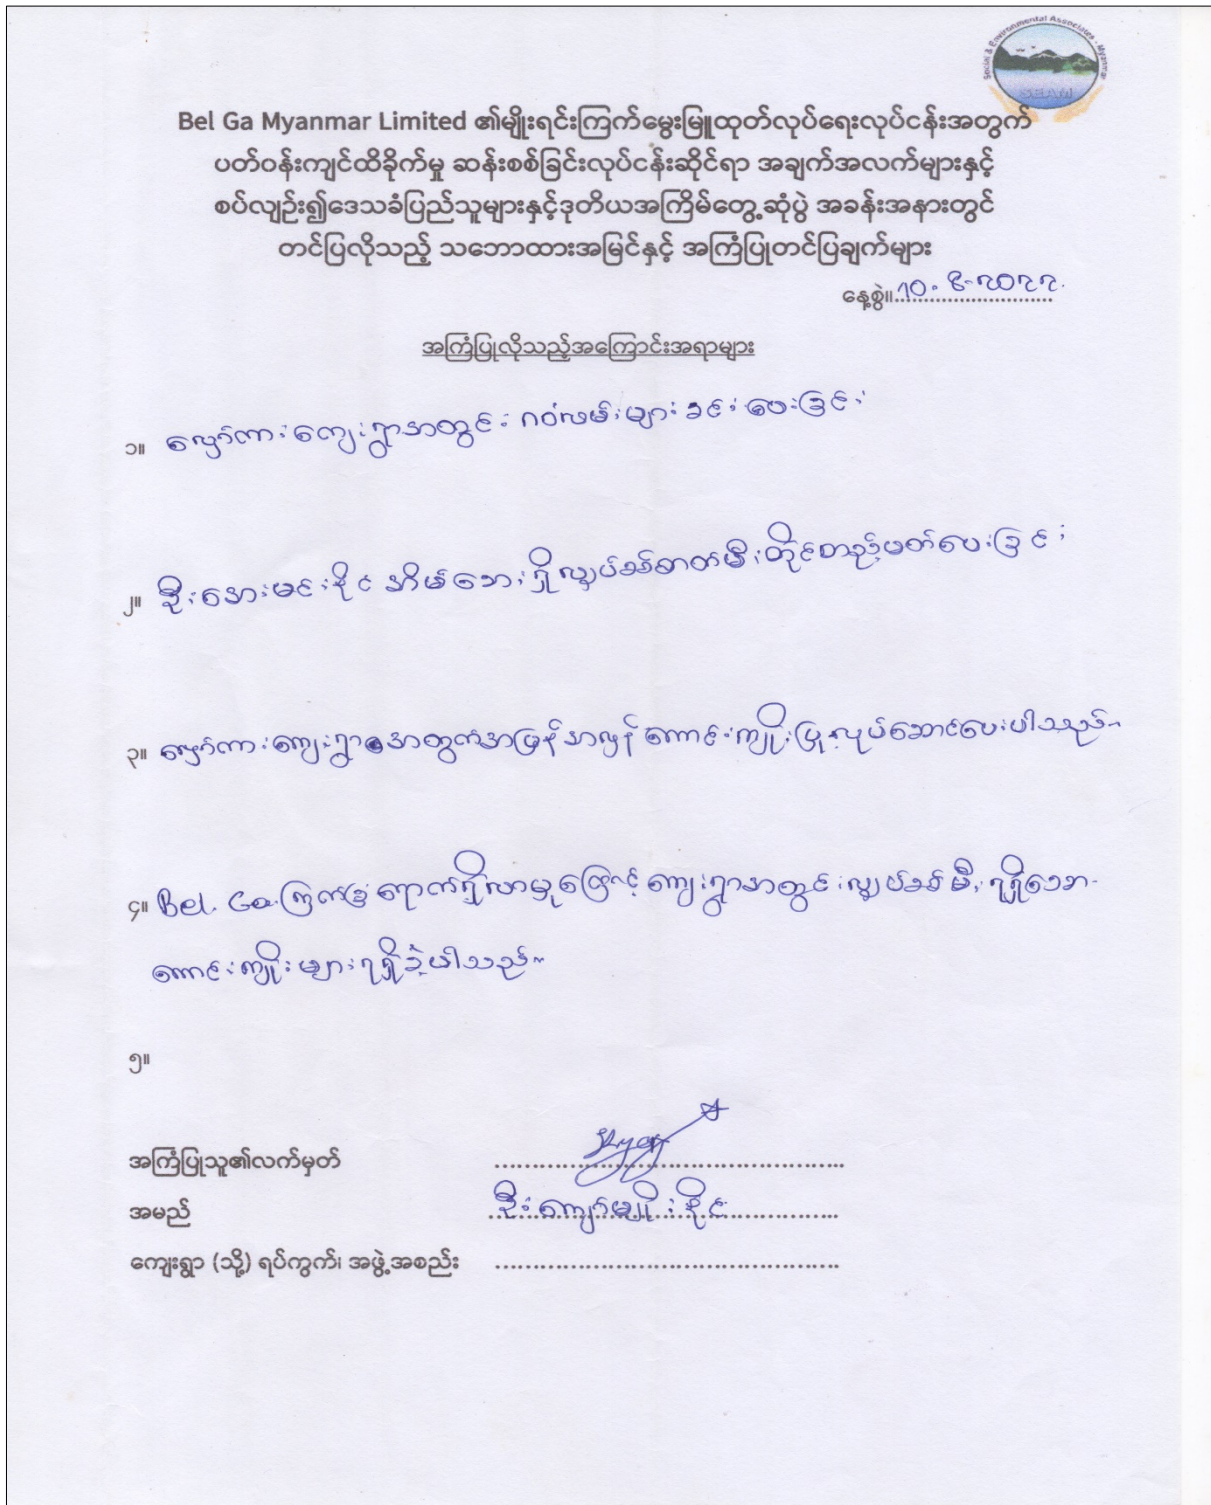 Social & Environmental Associates - Myanmar
SEAM
Bel Ga Myanmar Limited ၏မျိုးရင်းကြက်မွေးမြူထုတ်လုပ်ရေးလုပ်ငန်းအတွက်
ပတ်ဝန်းကျင်ထိခိုက်မှု ဆန်းစစ်ခြင်းလုပ်ငန်းဆိုင်ရာ အချက်အလက်များနှင့်
စပ်လျဉ်း၍ဒေသခံပြည်သူများနှင့်ဒုတိယအကြိမ်တွေ့ဆုံပွဲ အခန်းအနားတွင်
တင်ပြလိုသည့် သဘောထားအမြင်နှင့် အကြံပြုတင်ပြချက်များ
နေ့စွဲ။ ၁၀.၆.၂၀၂၂.
အကြံပြုလိုသည့်အကြောင်းအရာများ
၁။ လျှော်ကားကျေးရွာအတွင်း ဂဝံလမ်းများခင်းပေးခြင်း
၂။ ဦးအေးမင်းနိုင် အိမ်ဘေးရှိလျှပ်စစ်ဓာတ်မီးတိုင်စာည့်ဖတ်ပေးခြင်း
၃။ လျှော်ကားကျေးရွာအတွက်အပြန်အလှန်ကောင်းကျိုးပြုလုပ်ဆောင်ပေးပါသည်။
၄။ Bel Ga ကြက်ခြံရောက်ရှိလာမှုကြောင့်ကျေးရွာအတွင်းလျှပ်စစ်မီးရရှိသော
ကောင်းကျိုးများရရှိခဲ့ပါသည်။
၅။
အကြံပြုသူ၏လက်မှတ်
အမည် ဦးကျော်မျိုးနိုင်
ကျေးရွာ (သို့) ရပ်ကွက်၊ အဖွဲ့အစည်း